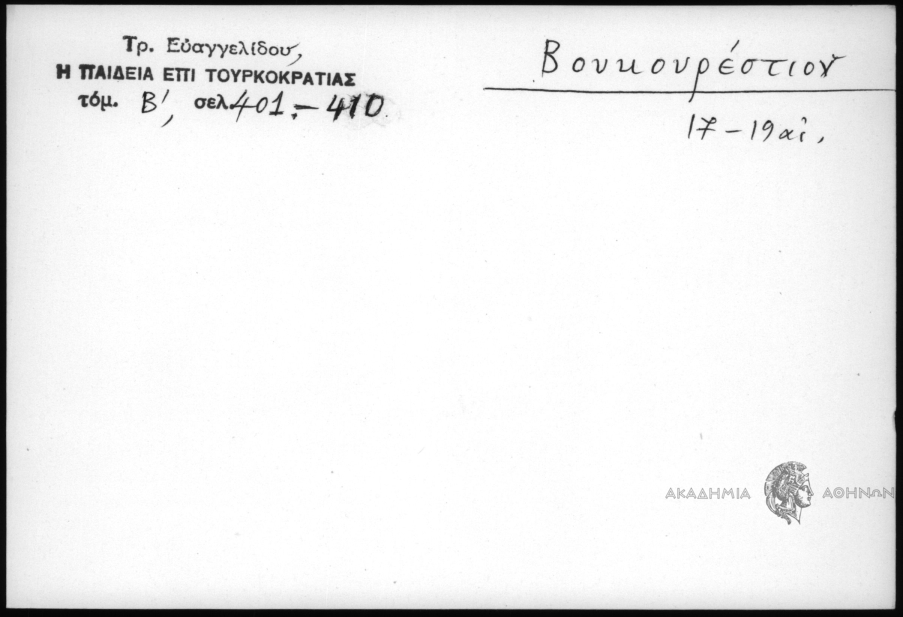 Τρ. Εὐαγγελίδου,
Η ΠΑΙΔΕΙΑ ΕΠΙ ΤΟΥΡΚΟΚΡΑΤΙΑΣ
τόμ. Β', σελ. 401.- 410
Βουκουρέστιον
17-19 αἰ.
ΑΚΑΔΗΜΙΑ ΑΘΗΝΩΝ